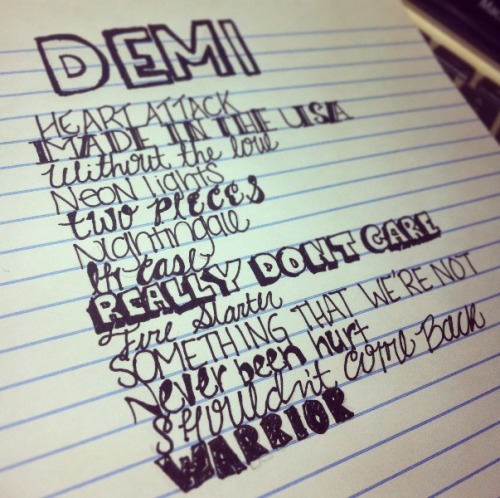 DEMI
HEART ATTACK
MADE IN THE USA
Without the love
NEON Lights
two pieces
Nightingale
In Case
REALLY DON'T CARE
Fire Starter
SOMETHING THAT WE'RE NOT
Never been hurt
Shouldn't come Back
WARRIOR